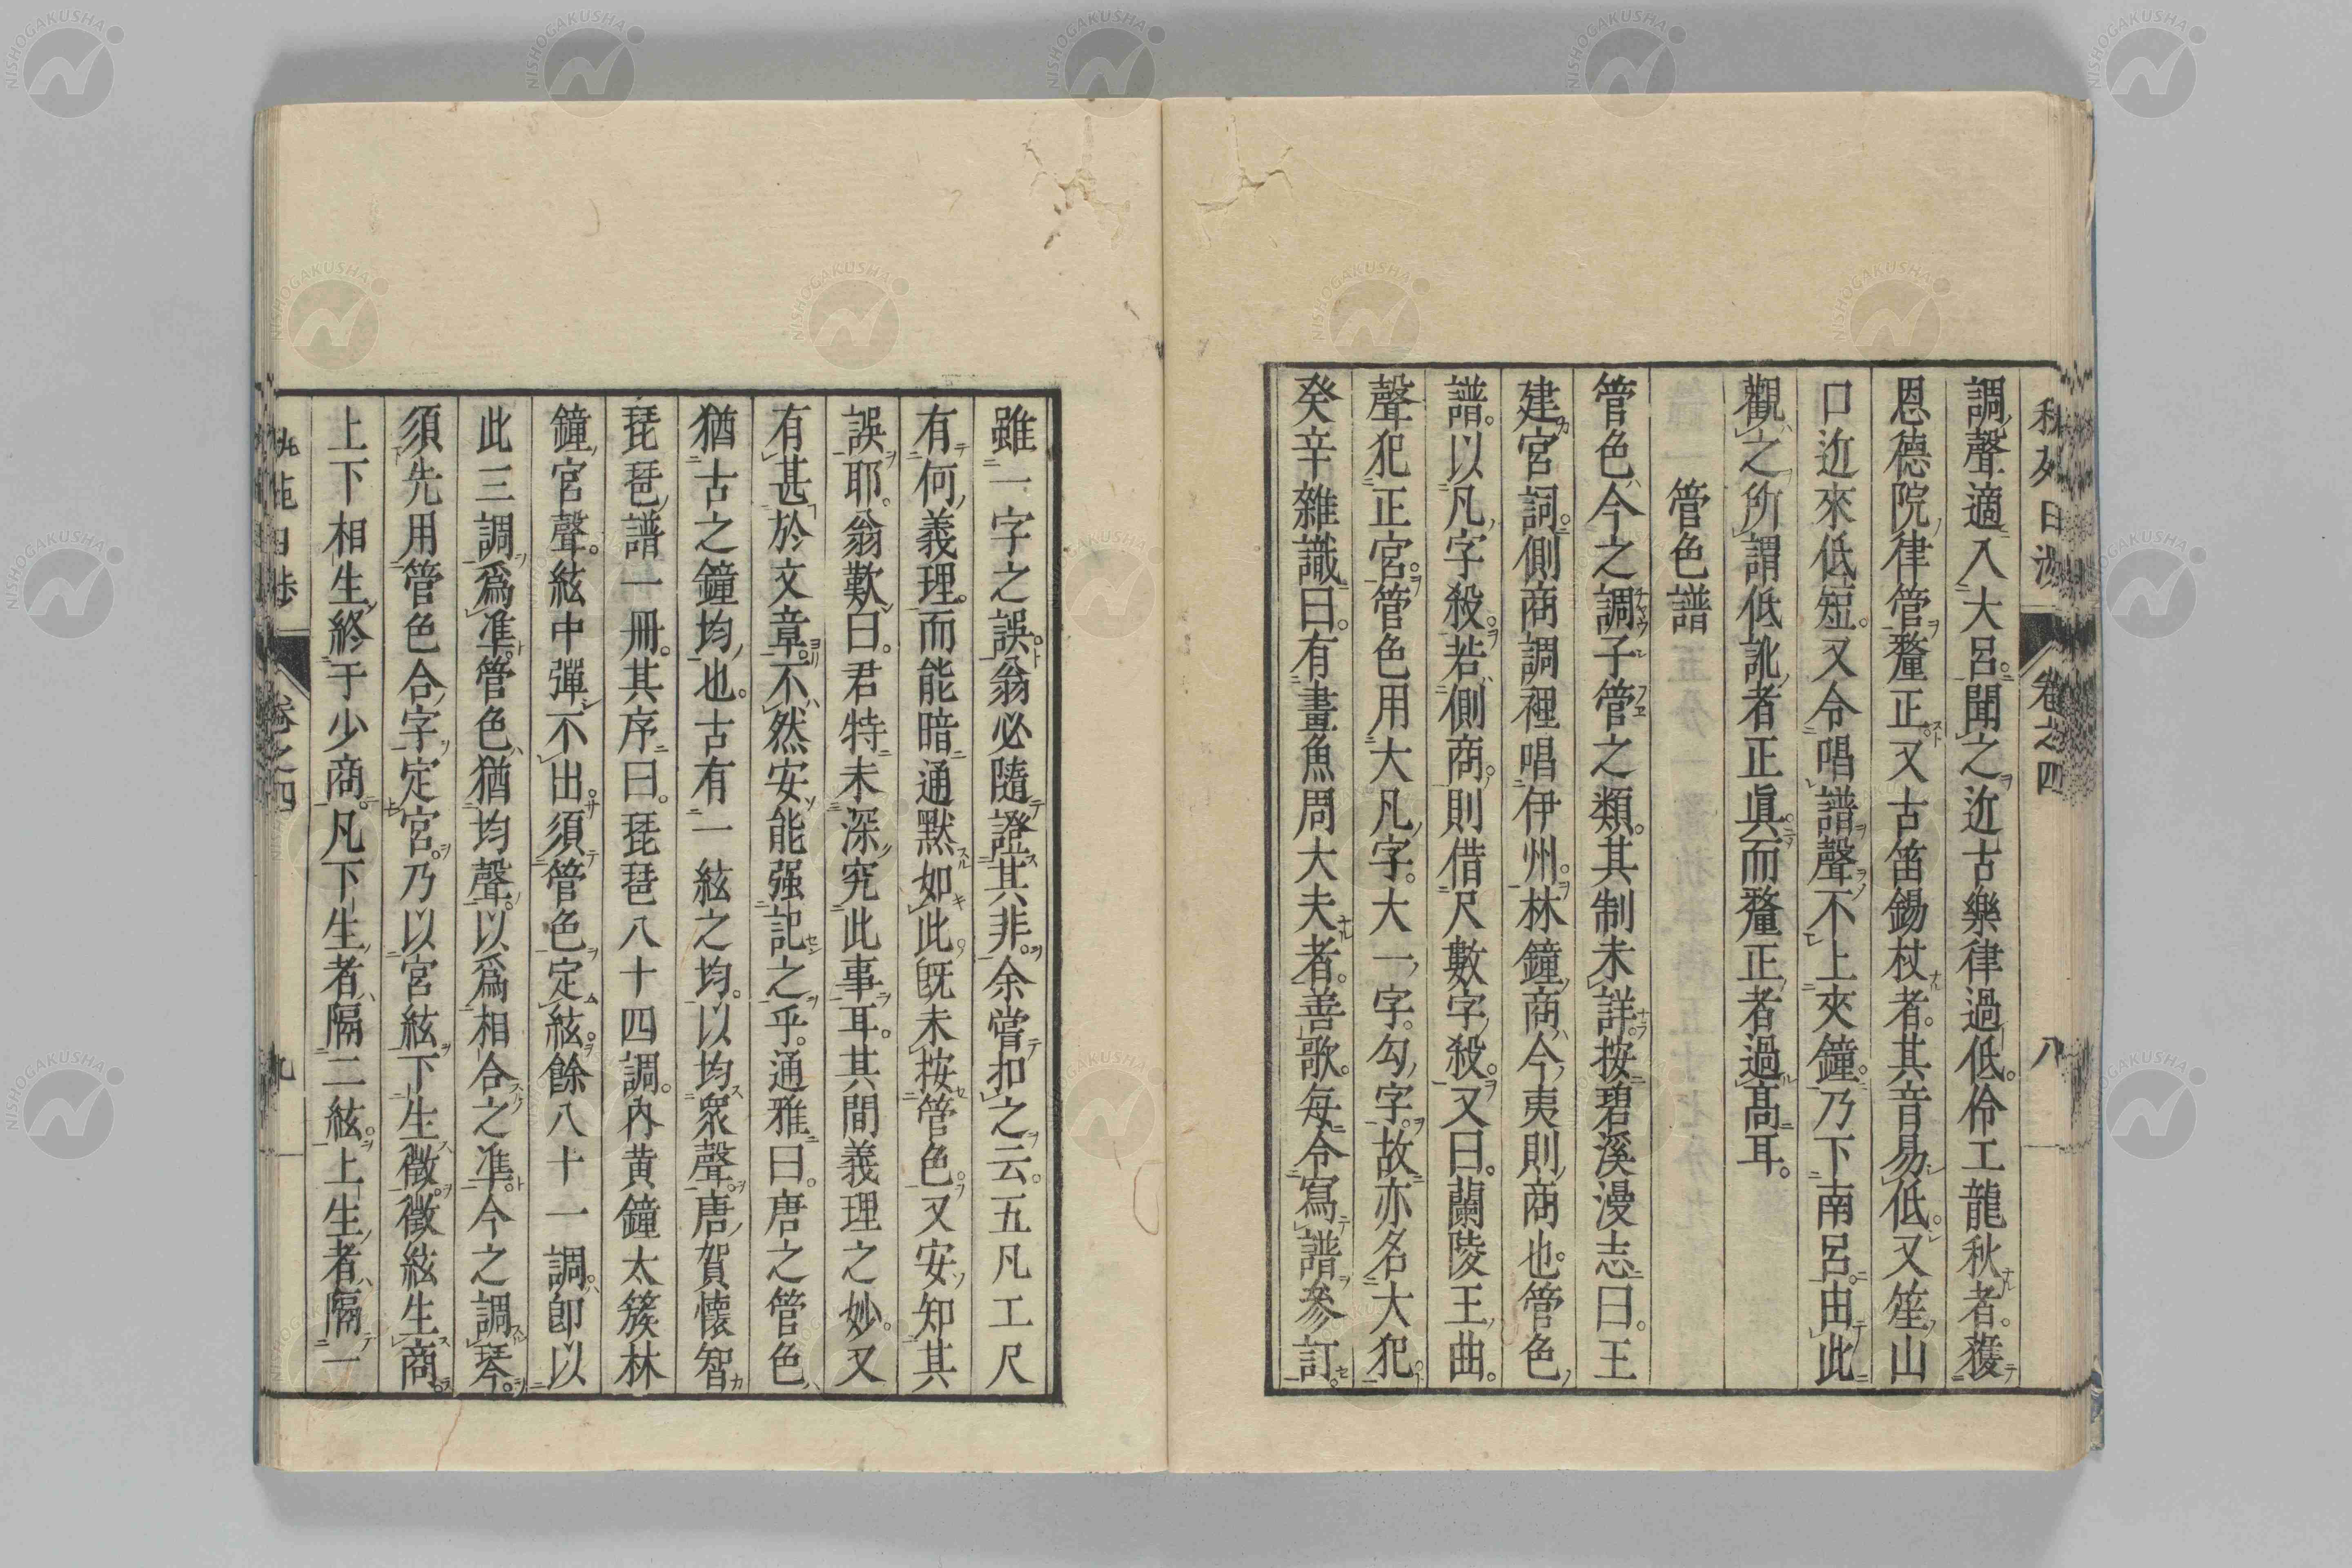 調聲適入大呂。聞之近古樂律過低。伶工龍秋者。獲
恩德院律管釐正。又古笛錫杖者。其音易低。又笙山
口近來低短。又令唱譜聲不上夾鐘。乃下南呂。由此
觀之所謂低訛者正眞。而釐正者過高耳。
管色譜
管色今之調子管之類。其制未詳。按碧溪漫志曰。王
建宮詞。側商調裡唱伊州。林鐘商今夷則商也。管色
譜。以凡字殺。若側商。則借尺數字殺。又曰。蘭陵王曲。
聲犯正宮。管色用大凡字。大一字。勾字。故亦名大犯。
癸辛雜識曰。有畫魚周大夫者。善歌。每令寫譜參訂。
雖一字之誤。翁必隨證其非。余嘗扣之云。五凡工尺
有何義理。而能暗通默如此。既未按管色。又安知其
誤耶。翁歎曰。君特未深究此事耳。其間義理之妙。又
有甚於文章。不然安能强記之乎。通雅曰。唐之管色
猶古之鐘均也。古有一絃之均。以均衆聲。唐賀懷智
琵琶譜一冊。其序曰。琵琶八十四調。內黃鐘太簇林
鐘宮聲。絃中彈不出。須管色定絃。餘八十一調。卽以
此三調爲準。管色猶均聲。以爲相合之準。今之調琴。
須先用管色合字定宮。乃以宮絃下生徵。徵絃生商。
上下相生。終于少商。凡下生者隔二絃。上生者隔一
卷之四
八
卷之四
九
NISHOGAKUSHA